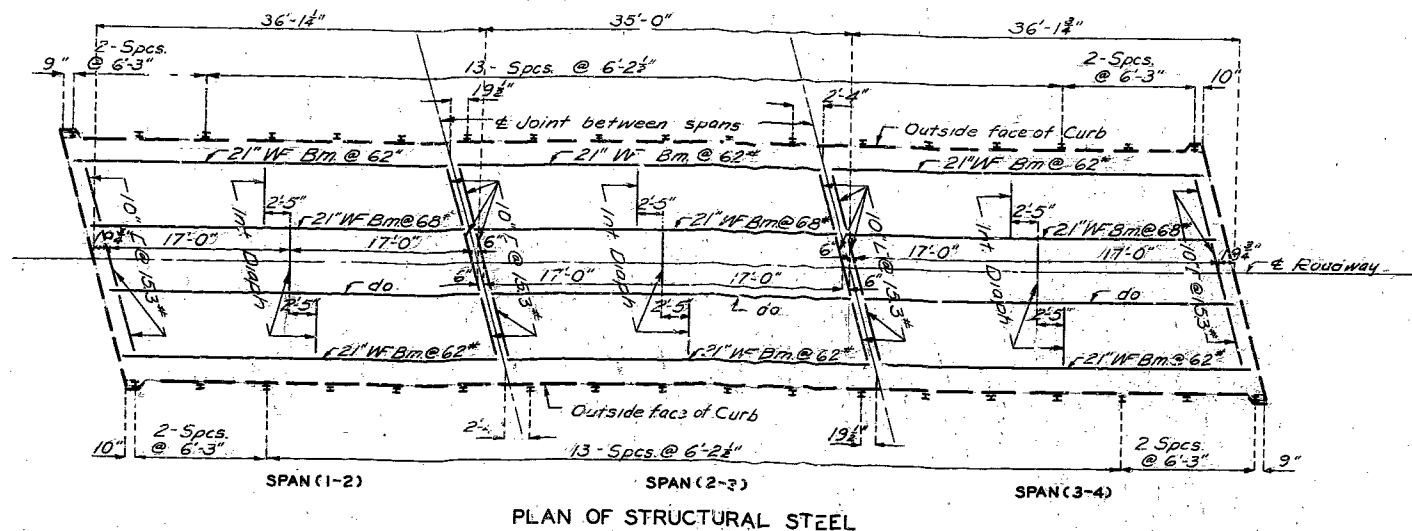 36'-1¼" 35'-0" 36'-1¾"
2-Spcs. @ 6'-3"
9"
13- Spcs. @ 6'-2½"
2-Spcs. @ 6'-3"
10"
19½"
2'-4"
℄ Joint between spans
Outside face of Curb
21" WF Bm. @ 62# 21" WF Bm. @ 62# 21" WF Bm. @ 62#
10" [ @ 15.3#
Int. Diaph
2'-5"
21" WF Bm @ 68#
10" [ @ 15.3#
Int. Diaph
2'-5"
21" WF Bm @ 68#
10" [ @ 15.3#
Int. Diaph
2'-5"
21" WF Bm @ 68#
10" [ @ 15.3#
17'-0" 17'-0" 6" 6" 17'-0" 17'-0"
6" 17'-0" 17'-0" 6"
℄ Roadway
do do do
2'-5" 2'-5" 2'-5"
21" WF Bm @ 62# 21" WF Bm @ 62# 21" WF Bm @ 62#
Outside face of Curb
10"
2-Spcs. @ 6'-3"
13 - Spcs. @ 6'-2½"
19½"
2 Spcs. @ 6'-3"
9"
SPAN (1-2) SPAN (2-3) SPAN (3-4)
PLAN OF STRUCTURAL STEEL